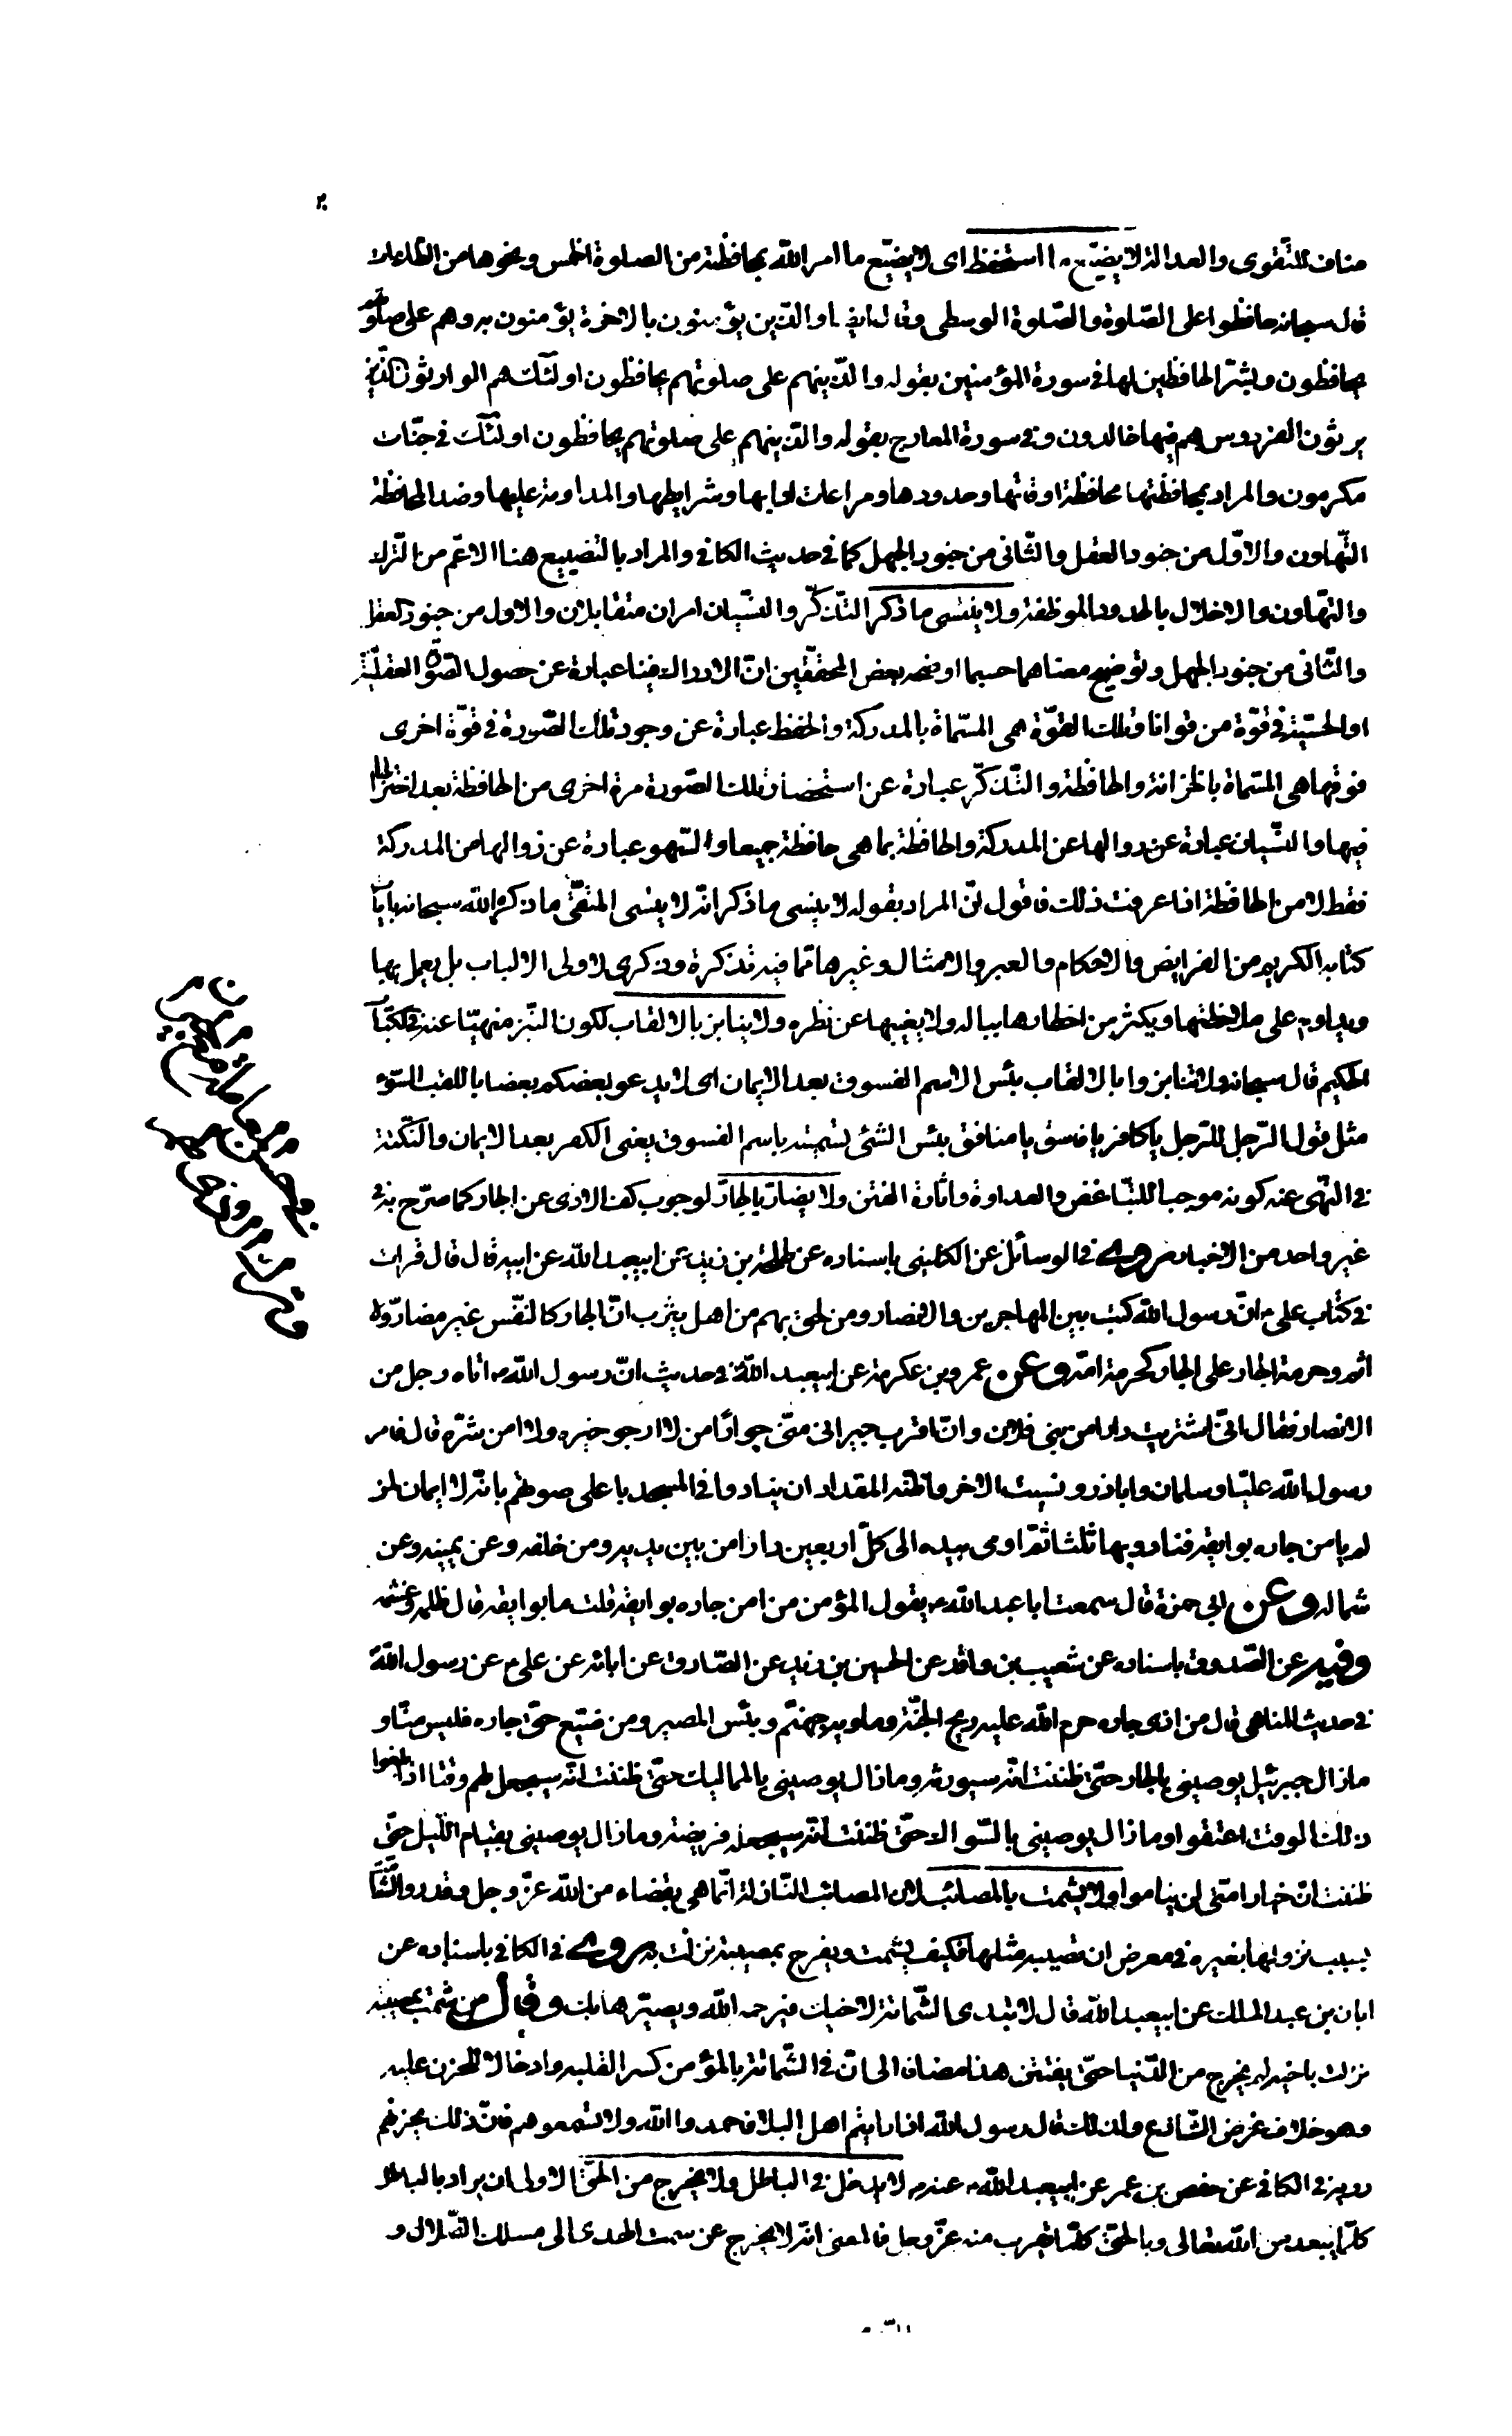 مناف للتّقوى والعدالة لا يضيّع ما استحفظ اى لا يضيّع ما امر الله بمحافظته من الصلوة الخمس ونحوها من الطاعات
قال سبحانه حافظوا على الصّلوة والصّلوة الوسطى وقال ايضا والذين يؤمنون بالاخرة يؤمنون به وهم على صلوتهم
يحافظون وبشّر الحافظين لها فى سورة المؤمنين بقوله والّذينهم على صلوتهم يحافظون اولئك هم الوارثون الّذين
يرثون الفردوس هم فيها خالدون وفى سورة المعارج بقوله والّذينهم على صلوتهم يحافظون اولئك فى جنّات
مكرمون والمراد بمحافظتها محافظة اوقاتها وحدودها ومراعات ادابها وشرايطها والمداومة عليها وضد المحافظة
التّهاون والاوّل من جنود العقل والثّانى من جنود الجهل كما فى حديث الكافى والمراد بالتضييع هنا الاعمّ من التّرك
والتهاون والاخلال بالحدود الموظفة ولا ينسى ما ذكر التذكّر والنسيان امران متقابلان والاول من جنود العقل
والثّانى من جنود الجهل وتوضيح معناهما حسبما اوضحه بعض المحققين انّ الادراك فينا عبارة عن حصول الصّورة العقليّة
او الحسّيّة فى قوّة من قوانا وتلك القوّة هى المسمّاة بالمدركة والحفظ عبارة عن وجود تلك الصّورة فى قوّة اخرى
فوقها هى المسمّاة بالخزانة والحافظة والتّذكّر عبارة عن استحضار تلك الصّورة مرة اخرى من الحافظة بعد اختزانها
فيها والنسيان عبارة عن زوالها عن المدركة والحافظة بما هى حافظة جميعا والسّهو عبارة عن زوالها من المدركة
فقط لا من الحافظة اذا عرفت ذلك فاقول انّ المراد بقوله لا ينسى ما ذكر انّه لا ينسى المتّقى ما ذكره الله سبحانه بايات
كتابه الكريم من الفرايض والاحكام والعبر والامثال وغيرها ممّا فيه تذكرة وذكرى لاولى الالباب بل يعمل بها
ويداوم على ملاحظتها ويكثر من اخطارها بباله ولا يغيبها عن نظره ولا ينابز بالالقاب لكون النّبز منهيّا عنه فى الكتاب
الحكيم قال سبحانه ولا تنابزوا بالالقاب بئس الاسم الفسوق بعد الايمان اى لا يدعو بعضكم بعضا باللقب السّوء
مثل قول الرّجل للرّجل يا كافر يا فاسق يا منافق بئس الشئ تسميته باسم الفسوق يعنى الكفر بعد الايمان والنّكتة
فى النّهى عنه كونه موجبا للتّباغض والعداوة واثارة الفتن ولا يضارّ بالجار لوجوب كفّ الاذى عن الجار كما صرّح به فى
غير واحد من الاخبار روى فى الوسائل عن الكلينى باسناده عن طلحة بن زيد عن ابيعبد الله عن ابيه قال قال قرات
فى كتاب على انّ رسول الله كتب بين المهاجرين والانصار ومن لحق بهم من اهل يثرب انّ الجار كالنّفس غير مضارّ ولا
اثم وحرمة الجار على الجار كحرمة امّه وعن عمرو بن عكرمة عن ابيعبد الله فى حديث انّ رسول الله اتاه رجل من
الانصار فقال انّى اشتريت دارا من بنى فلان وانّ اقرب جيرانى منّى جوارا من لا ارجو خيره ولا امن شرّه قال فامر
رسول الله عليّا وسلمان واباذر ونسيت الاخر واظنّه المقداد ان ينادوا فى المسجد باعلى صوتهم بانّه لا ايمان لمن
لم يامن جاره بوايقه فنادوا بها ثلثا ثمّ اومى بيده الى كلّ اربعين دارا من بين يديه ومن خلفه وعن يمينه وعن
شماله وعن ابى حمزة قال سمعت ابا عبد الله يقول المؤمن من امن جاره بوايقه قلت ما بوايقه قال ظلمه وغشمه
وفيه عن الصّدوق باسناده عن شعيب بن واقد عن الحسين بن زيد عن الصّادق عن ابائه عن على عن رسول الله
فى حديث المناهى قال من اذى جاره حرم الله عليه ريح الجنّة وماويه جهنّم وبئس المصير ومن ضيّع حقّ جاره فليس منّا و
مازال جبرئيل يوصينى بالجار حتّى ظننت انّه سيورثه ومازال يوصينى بالمماليك حتّى ظننت انّه سيجعل لهم وقتا اذا بلغوا
ذلك الوقت اعتقوا ومازال يوصينى بالسّواك حتّى ظننت انّه سيجعله فريضة ومازال يوصينى بقيام اللّيل حتّى
ظننت انّ خيار امّتى لن يناموا ولا يشمت بالمصائب لانّ المصائب النّازلة انّما هى بقضاء من الله عزّ وجل وقدر والشّامت
بسبب نزولها بغيره فى معرض ان تصيبه مثلها فكيف يشمت ويفرح بمصيبة نزلت به روى فى الكافى باسناده عن
ابان بن عبد الملك عن ابيعبد الله قال لا تبدى الشّماتة لاخيك فيرحمه الله ويصيّرها بك وقال من شمت بمصيبة
نزلت باخيه لم يخرج من الدّنيا حتّى يفتتن هذا مضاف الى انّ فى الشّماتة بالمؤمن كسرا لقلبه وادخالا للحزن عليه
وهو خلاف غرض الشّارع ولذلك قال رسول الله اذا رايتم اهل البلا فاحمدوا الله ولا تسمعوهم فانّ ذلك يحزنهم
رويه فى الكافى عن حفص بن عمر عن ابيعبد الله عنه لا يدخل فى الباطل ولا يخرج من الحقّ الاولى ان يراد بالباطل
كلّما يبعد من الله تعالى وبالحقّ كلّما يقرب منه عزّ وجل فالمعنى انّه لا يخرج عن سمت الهدى الى مسلك الضّلال و